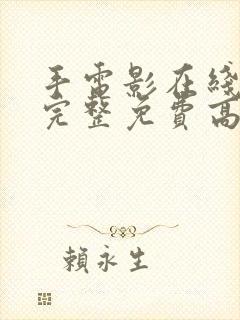 手雷影在綫
完整免費高
賴永生